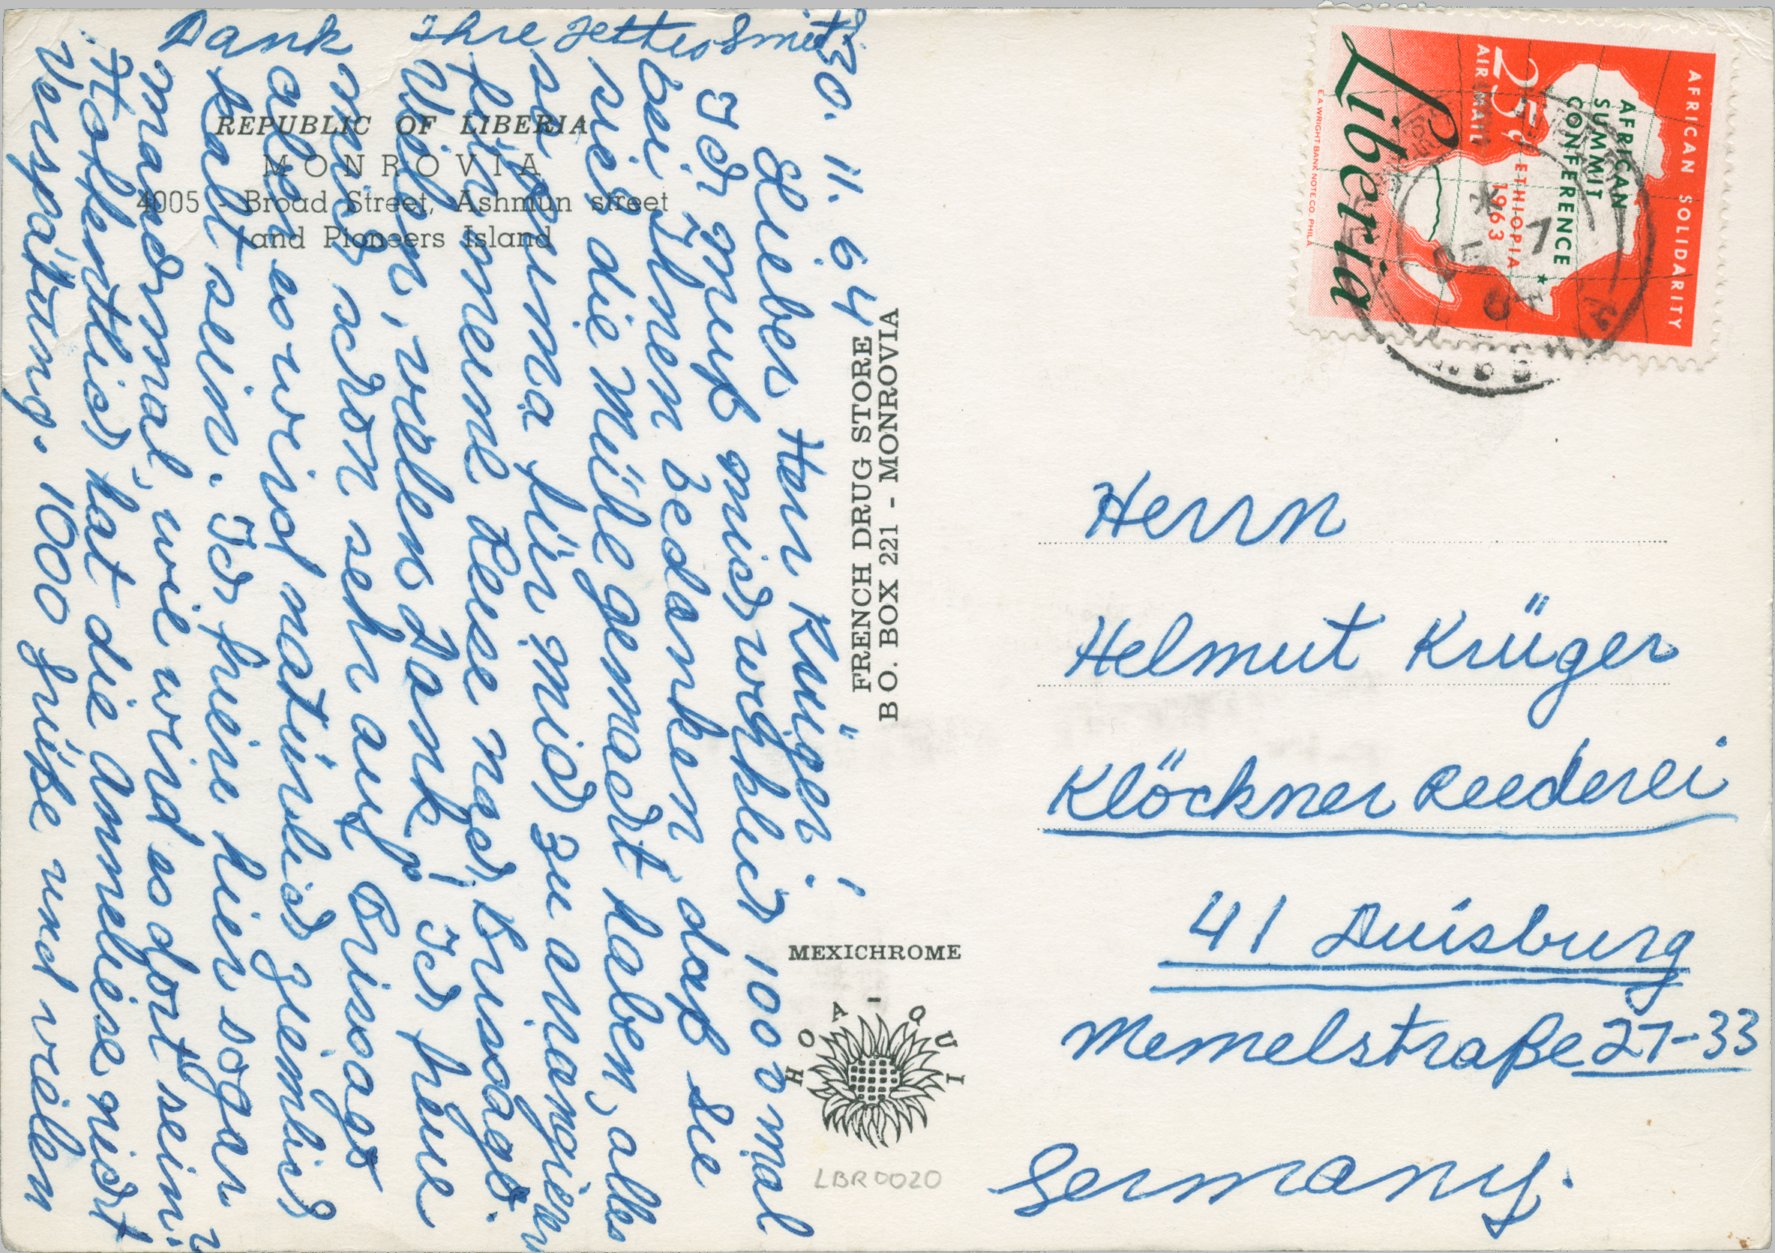 REPUBLIC OF LIBERIA
MONROVIA
4005 - Broad Street, Ashmun street
and Pioneers Island
30. 11. 64
Lieber Herr Krüger!
Ich muß mich wirklich 1000 mal
bei Ihnen bedanken, daß Sie
sich die Mühe gemacht haben, alles
so prima für mich zu arrangieren
für meine Reise nach Brissago.
Vielen, vielen Dank! Ich freue
mich schon sehr auf Brissago
aber es wird natürlich ziemlich
kalt sein. Ich friere hier sogar
manchmal, wie wird es dort sein?
Hoffentlich hat die Anneliese nicht
Verspätung. 1000 Grüße und vielen
Dank Ihre
FRENCH DRUG STORE
B O. BOX 221 - MONROVIA
MEXICHROME
HOA-QUI
LBR0020
AFRICAN SOLIDARITY
AFRICAN
SUMMIT
CONFERENCE
ETHIOPIA
1963
25¢
AIR MAIL
Liberia
E.A. WRIGHT BANK NOTE CO. PHILA.
Herrn
Helmut Krüger
Klöckner Reederei
41 Duisburg
Memelstraße 27-33
Germany.